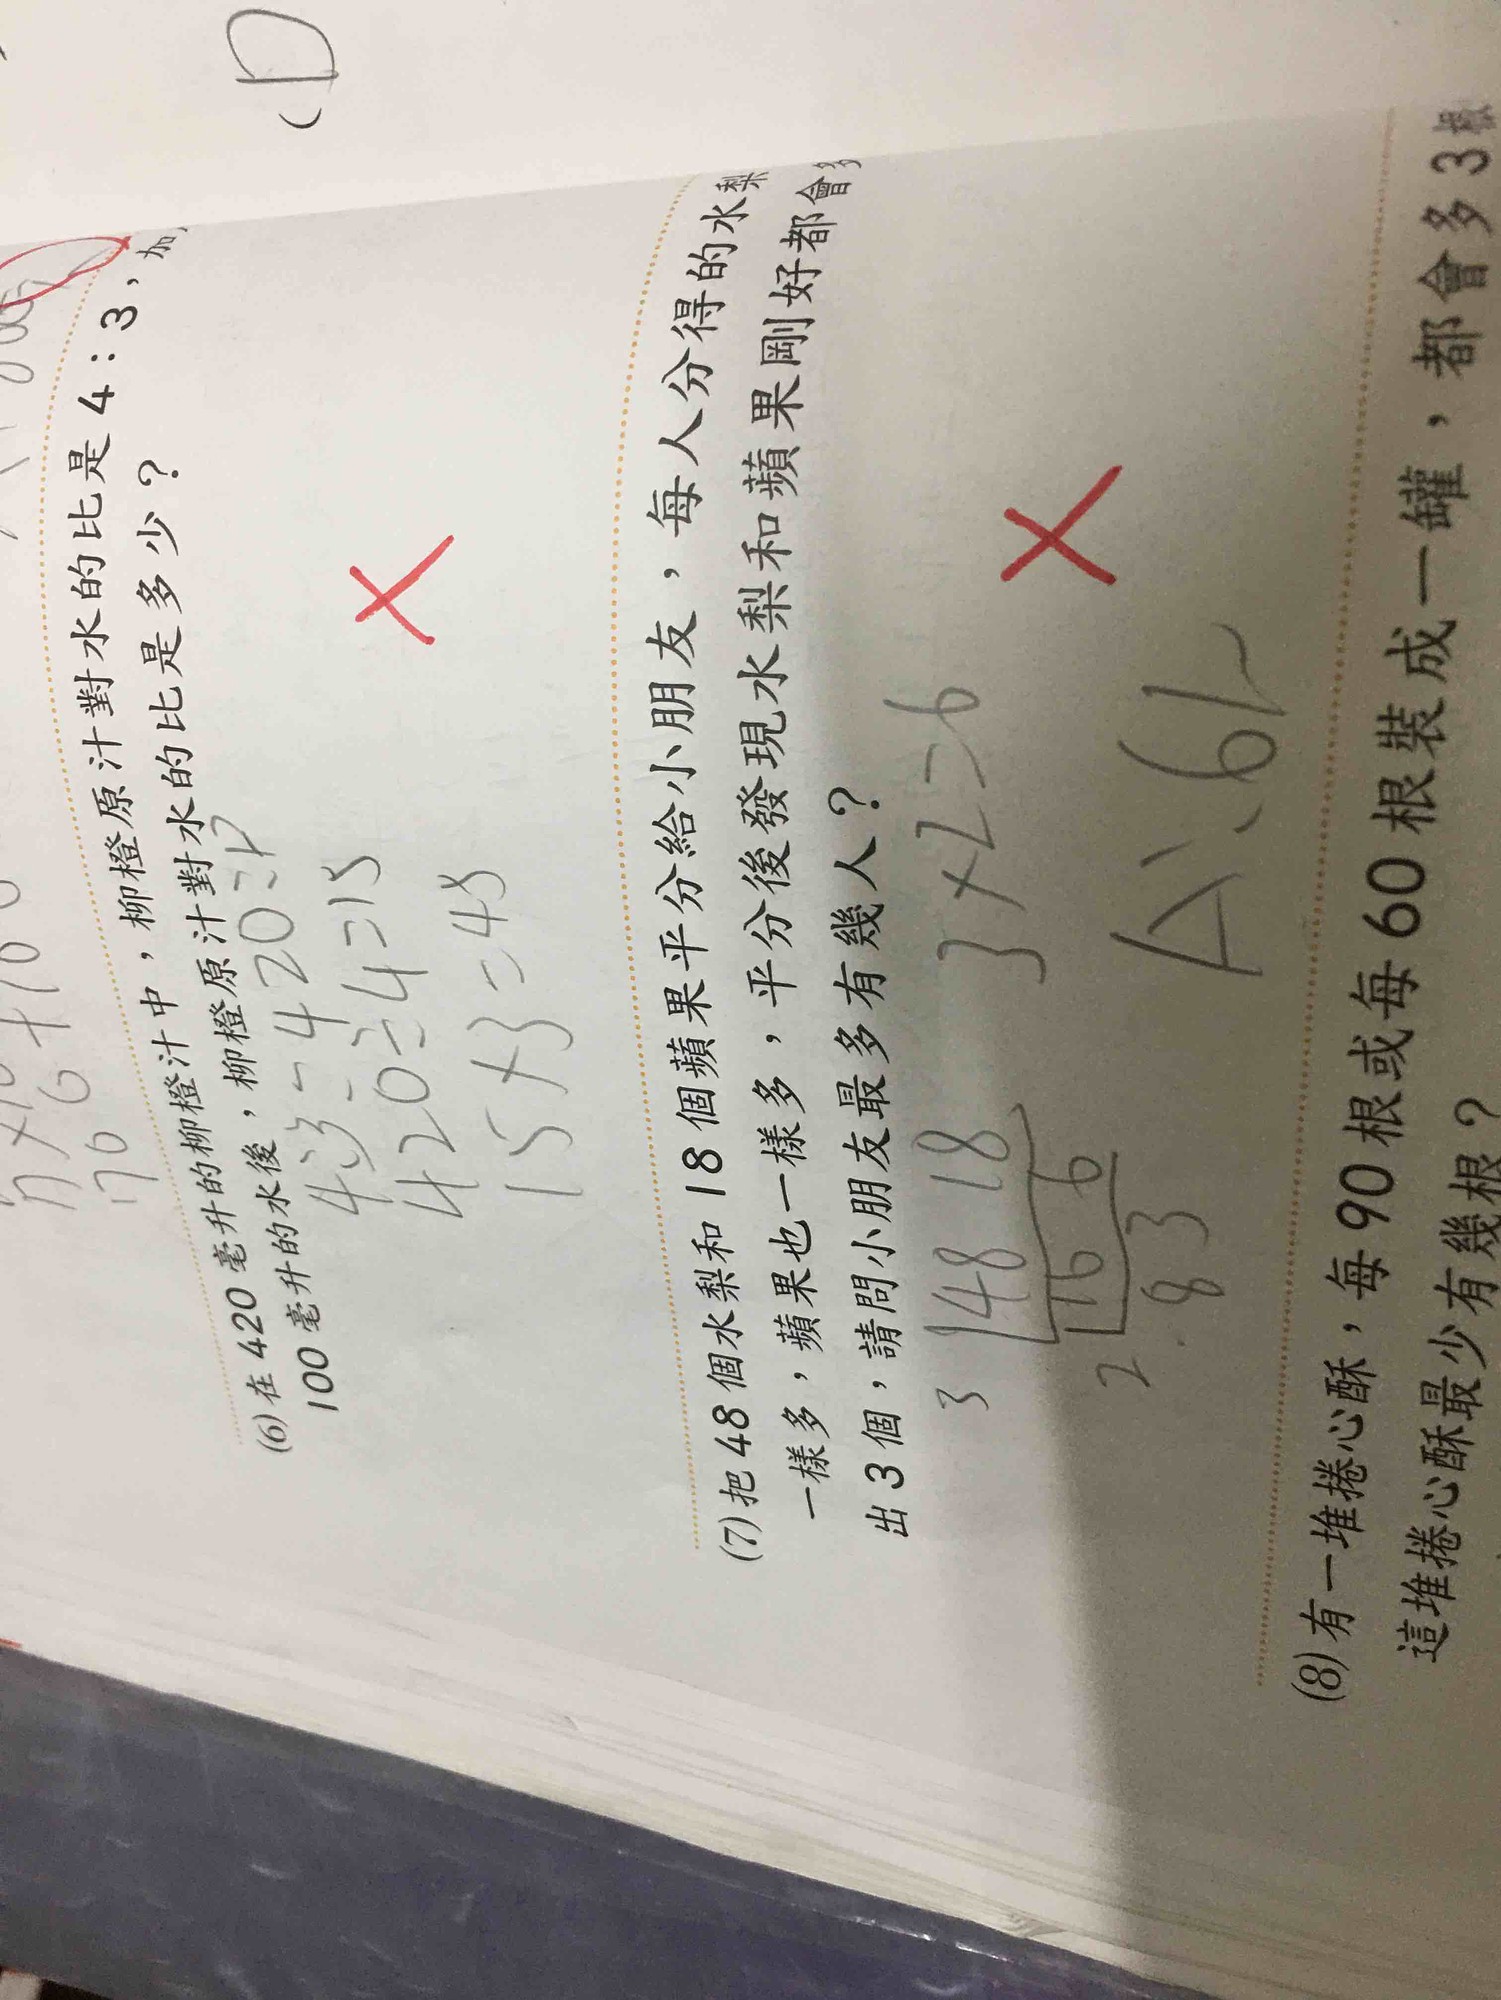 (D
(6) 在 420 毫升的柳橙汁中，柳橙原汁對水的比是 4：3，加
100 毫升的水後，柳橙原汁對水的比是多少？
4:3=420:
420÷4=15
15×3=45
(7) 把 48 個水梨和 18 個蘋果平分給小朋友，每人分得的水梨
一樣多，蘋果也一樣多，平分後發現水梨和蘋果剛好都會多
出 3 個，請問小朋友最多有幾人？
3 48 18
2 16 6
8 3
3×2=6
A:6人
(8) 有一堆捲心酥，每 90 根或每 60 根裝成一罐，都會多 3 根
這堆捲心酥最少有幾根？